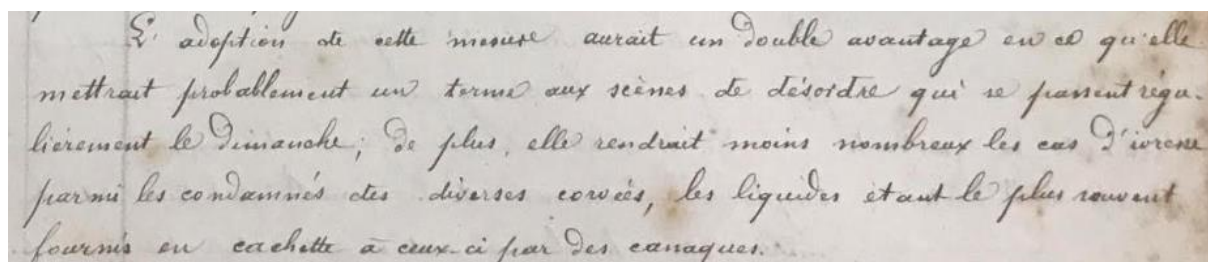 L'adoption de cette mesure aurait un double avantage en ce qu'elle
mettrait probablement un terme aux scènes de désordre qui se passent régu-
lièrement le Dimanche; De plus, elle rendrait moins nombreux les cas d'ivresse
parmi les condamnés des diverses corvées, les liquides étant le plus souvent
fournis en cachette à ceux-ci par des canaques.